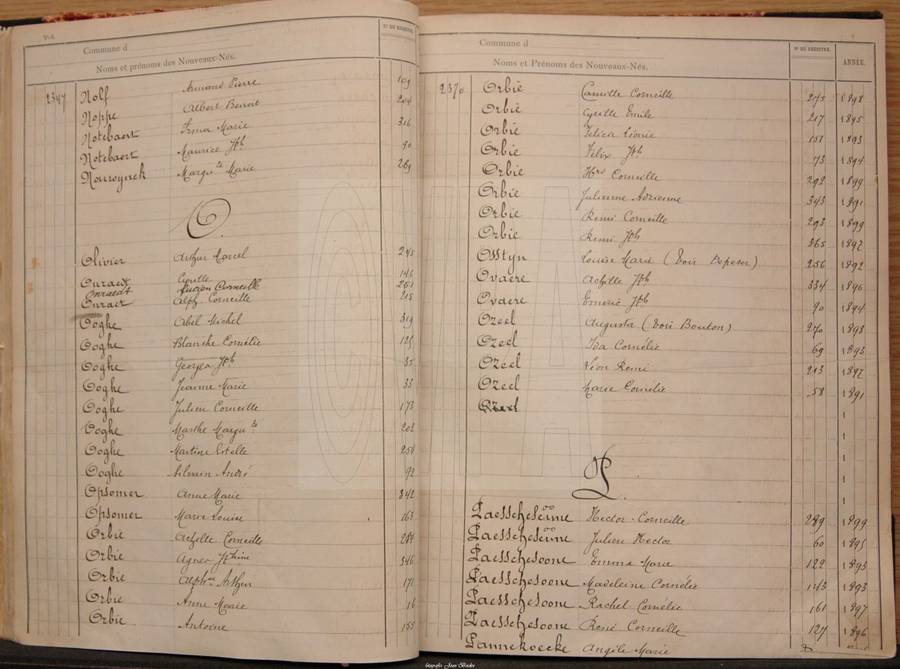 Commune d
N° DU REGISTRE.
Noms et prénoms des Nouveaux-Nés.
2347 Nolf Armand Pierre 109
Noppe Albert Benoit 204
Notebaert Irma Marie 316
Notebaert Maurice Jph 90
Nouwynck Margu.te Marie 269
O.
Olivier Arthur Marcel 245
Ouraedt Cyrille 146
Lucien Corneille 261
Alph. Corneille 218
Ooghe Abel Michel 319
Ooghe Blanche Cornélie 125
Ooghe Georges Jph 35
Ooghe Jeanne Marie 33
Ooghe Julien Corneille 173
Ooghe Marthe Margu.te 202
Ooghe Martine Estelle 258
Ooghe Silvain André 92
Opsomer Anne Marie 342
Opsomer Marie Louise 163
Orbie Achille Corneille 288
Orbie Agnes Jphine 346
Orbie Alph.se Arthur 171
Orbie Anne Marie 16
Orbie Antoine 155
Commune d
N° DU REGISTRE.
ANNÉE.
Noms et Prénoms des Nouveaux-Nés.
2370 Orbie Camille Corneille 275 1898
Orbie Cyrille Emile 217 1895
Orbie Félicie Léonie 151 1893
Orbie Félix Jph 73 1894
Orbie Hri Corneille 292 1899
Orbie Julienne Adrienne 343 1891
Orbie Remi Corneille 293 1899
Orbie Remi Jph 365 1892
Osstyn Louise Marie (Voir Depoter) 256 1892
Ovaere Achille Jph 334 1896
Ovaere Emeric Jph 90 1894
Ozeel Augusta (Voir Bouton) 270 1898
Ozeel Ida Cornélie 69 1893
Ozeel Léon Remi 213 1897
Ozeel Marie Cornélie 58 1891
Ozeel
P.
Paesschesoone Hector Corneille 289 1899
Paesschesoone Julien Hector 60 1895
Paesschesoone Emma Marie 122 1895
Paesschesoone Madeleine Cornélie 143 1893
Paesschesoone Rachel Cornélie 161 1897
Paesschesoone René Corneille 127 1896
Pannekoecke Angèle Marie